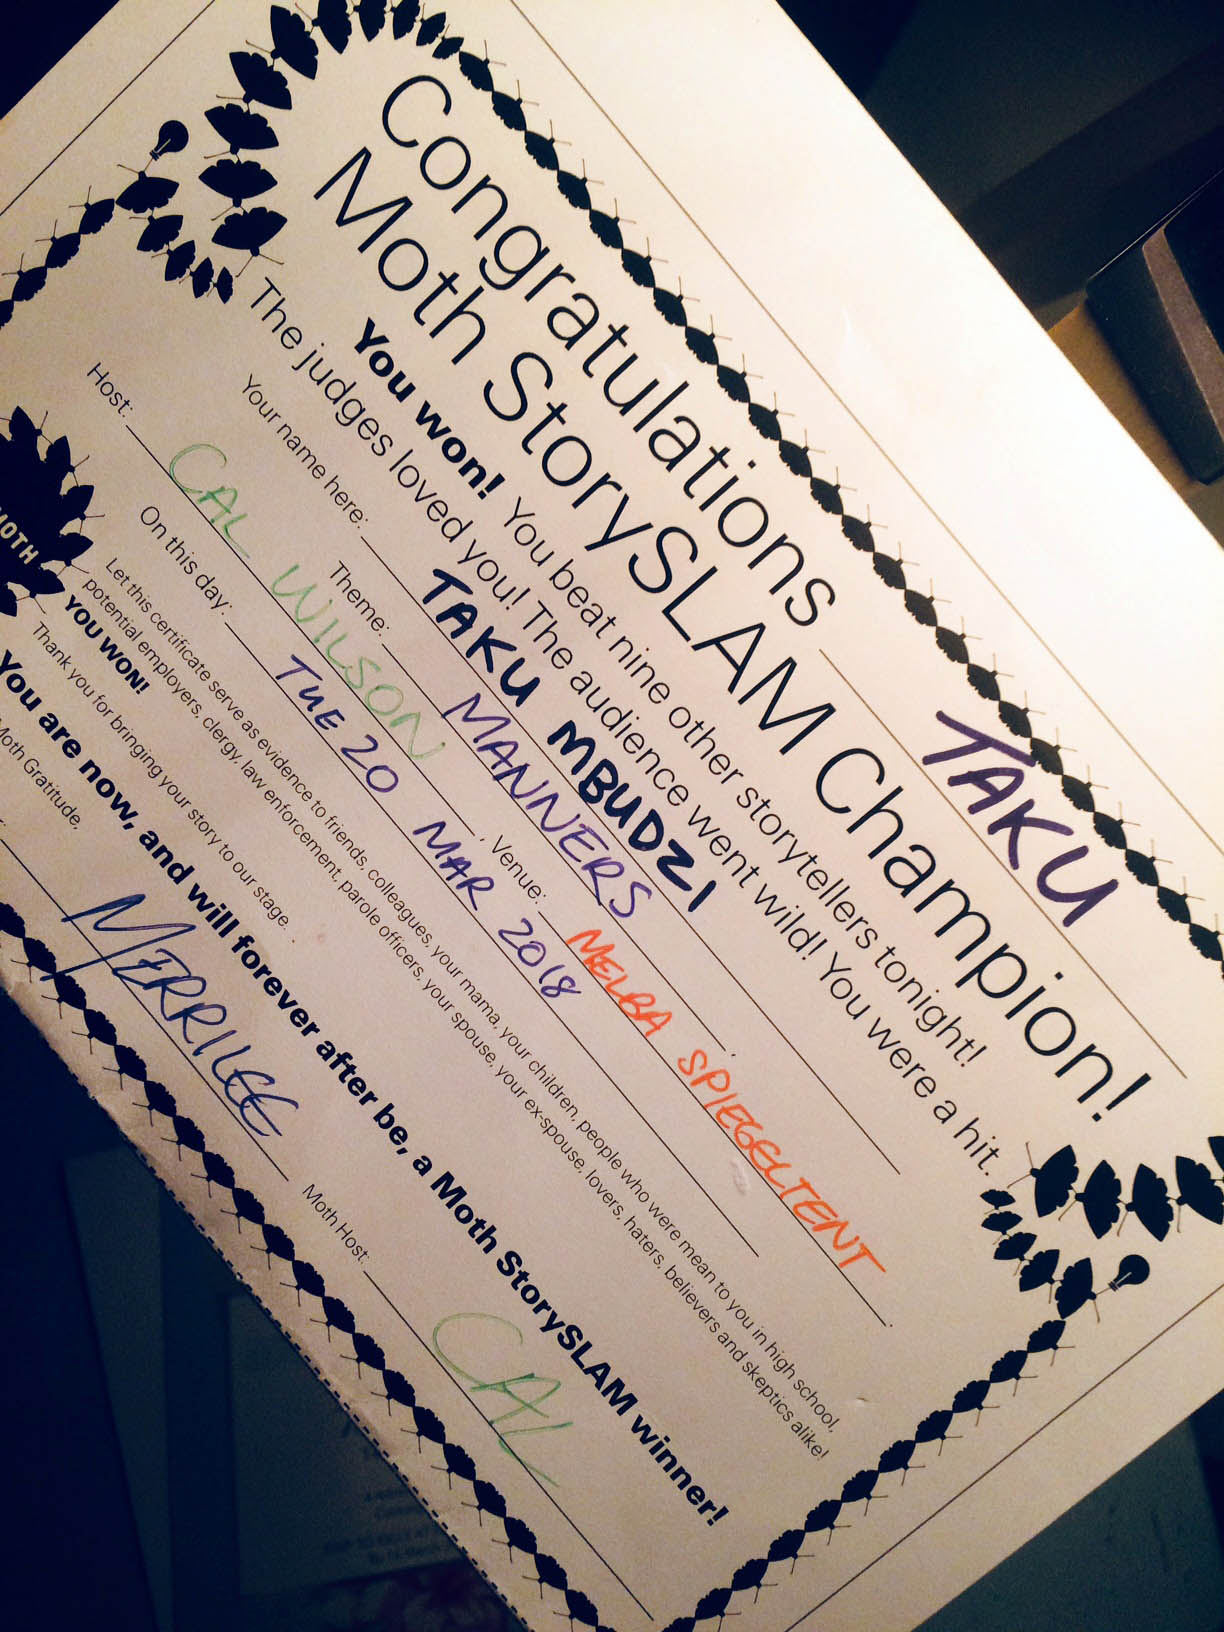 Congratulations TAKU
Moth StorySLAM Champion!
You won! You beat nine other storytellers tonight!
The judges loved you! The audience went wild! You were a hit.
Your name here: TAKU MBUDZI
Theme: MANNERS
Host: CAL WILSON, Venue: MELBA SPIEGELTENT.
On this day: TUE 20 MAR 2018
Let this certificate serve as evidence to friends, colleagues, your mama, your children, people who were mean to you in high school,
potential employers, clergy, law enforcement, parole officers, your spouse, your ex-spouse, lovers, haters, believers and skeptics alike!
YOU WON!
Thank you for bringing your story to our stage.
You are now, and will forever after be, a Moth StorySLAM winner!
Moth Gratitude,
MERRILEE
Moth Host: CAL
MOTH